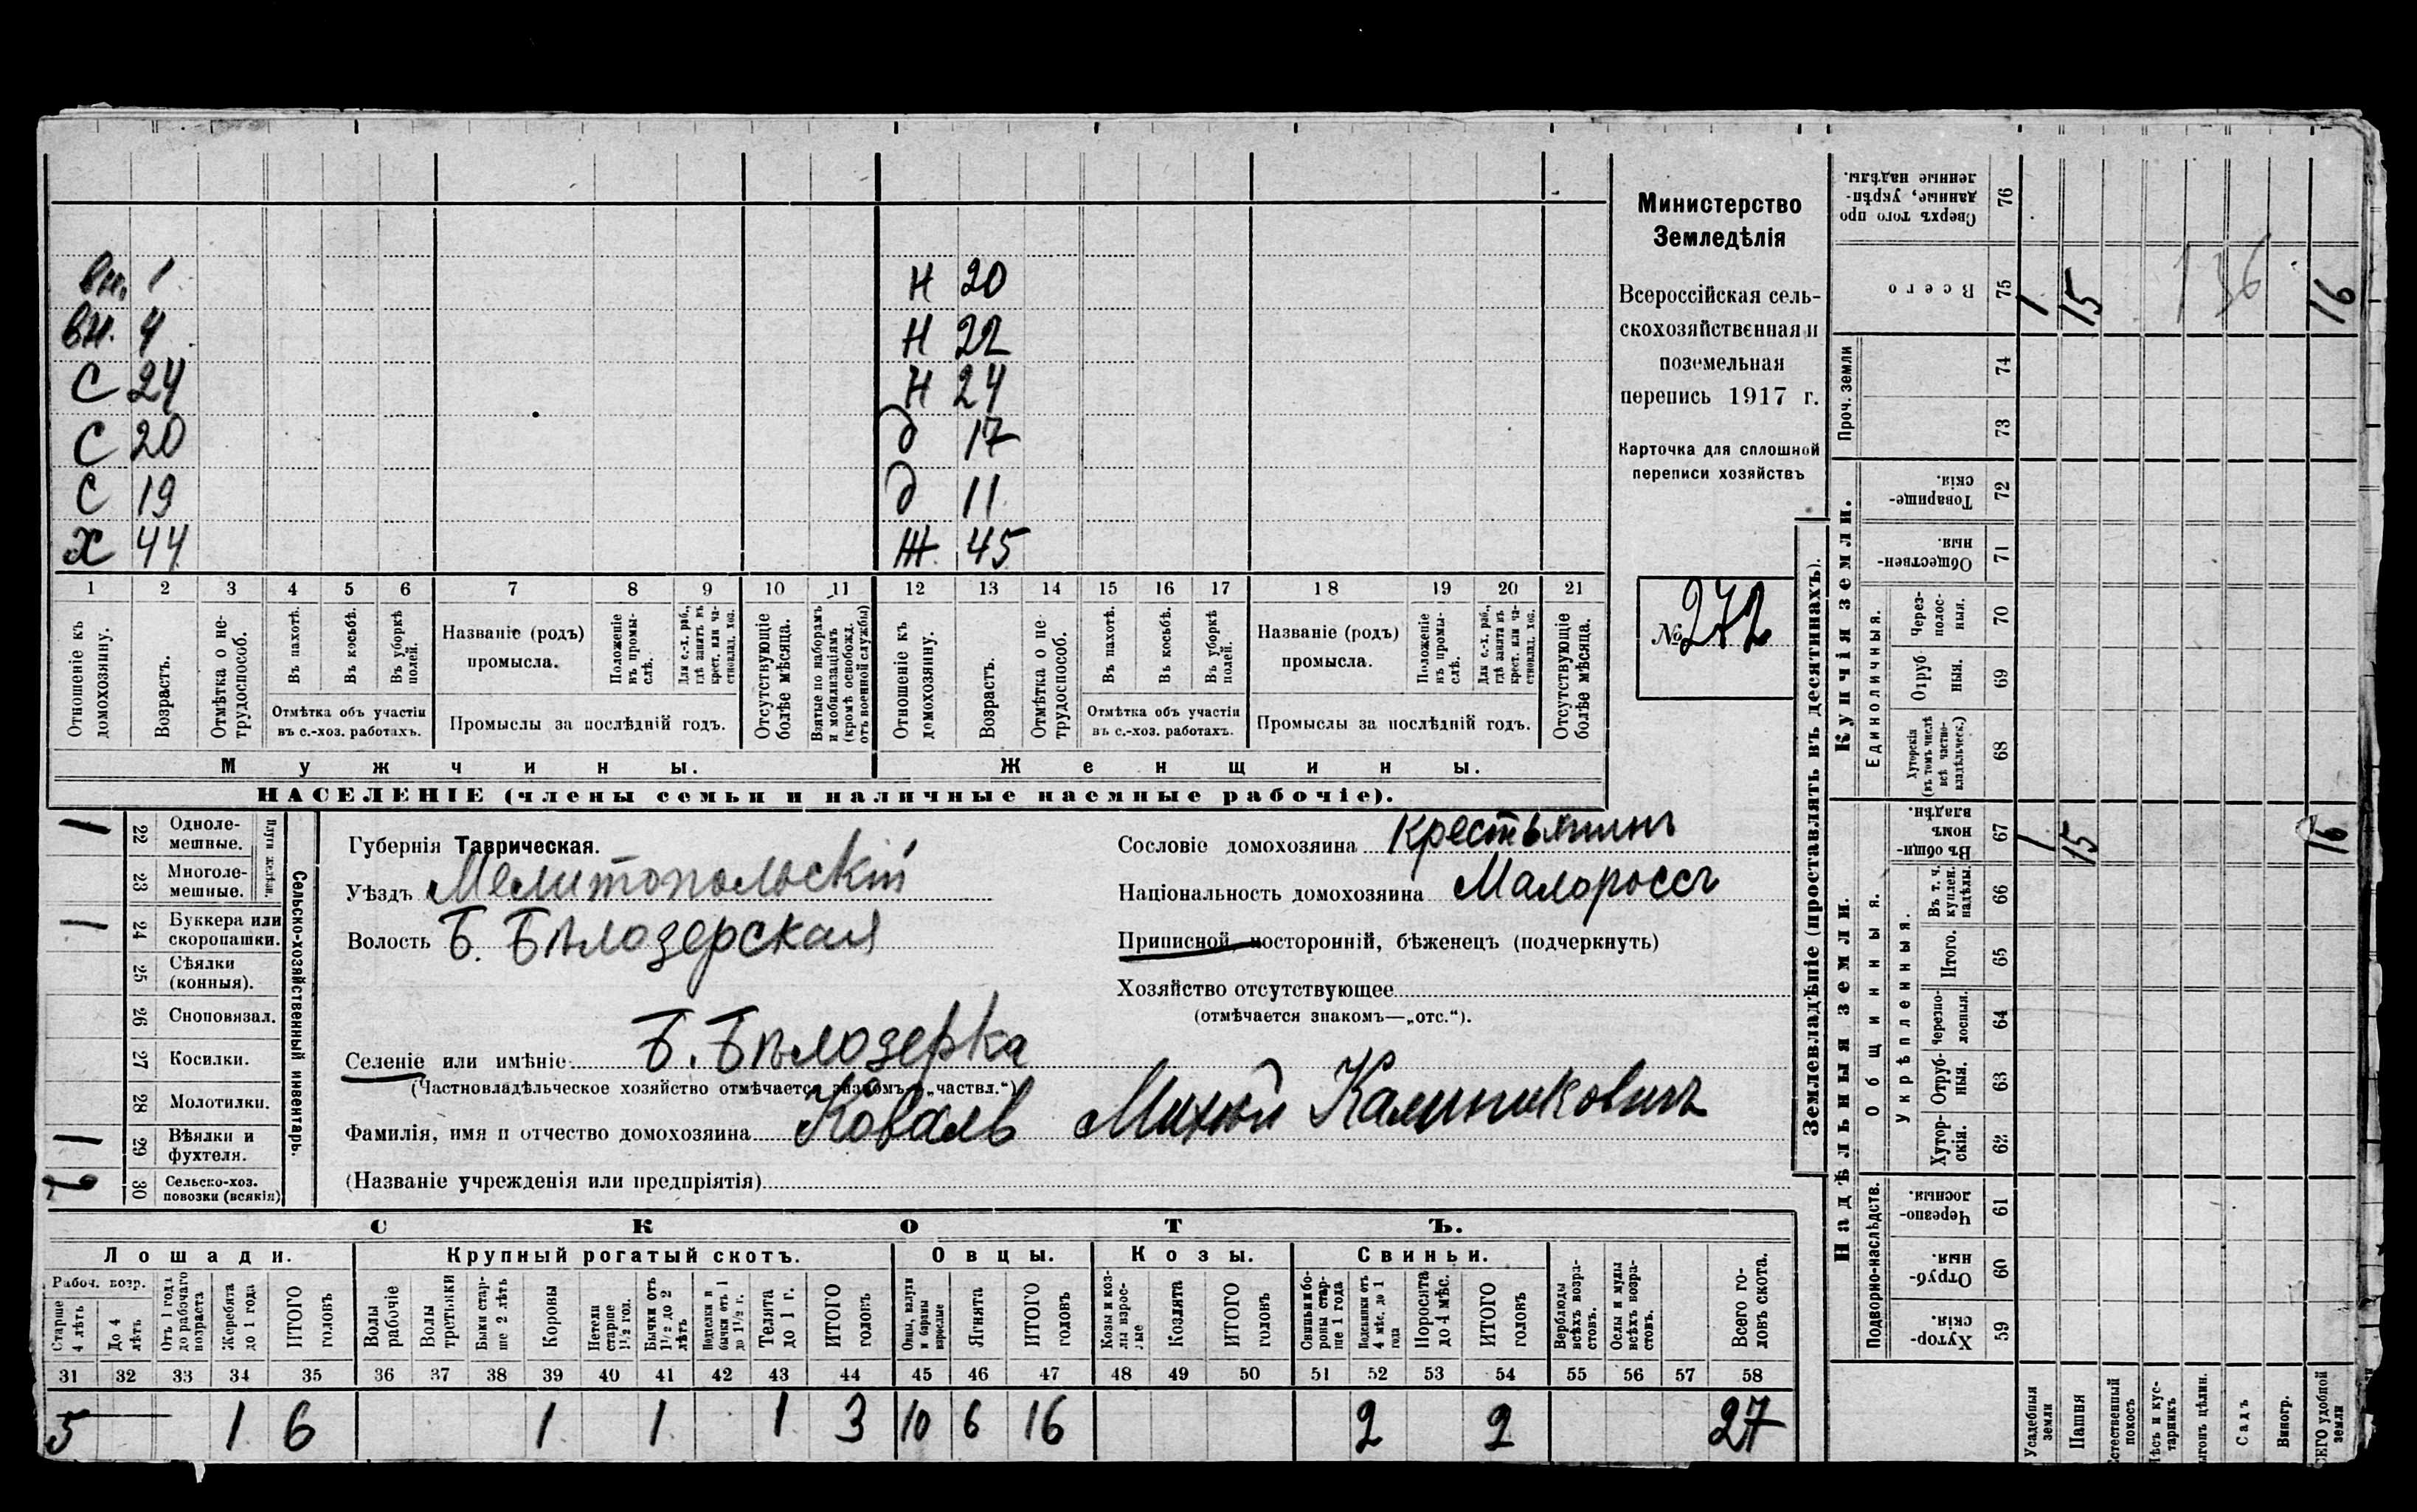 вн. 1 Н 20
вн. 4 Н 22
С 24 Н 24
С 20 д 17
С 19 д 11
Х 44 Ж. 45
1 2 3 4 5 6 7 8 9 10 11 12 13 14 15 16 17 18 19 20 21
Отношеніе къ домохозяину.
Возрастъ.
Отмѣтка о не-трудоспособ.
Въ пахотѣ.
Въ косьбѣ.
Въ уборкѣ полей.
Отмѣтка объ участіи въ с.-хоз. работахъ.
Названіе (родъ) промысла.
Положеніе въ промы-слѣ.
Для с.-х. раб., гдѣ занятъ въ крест. или ча-стновлад. хоз.
Промыслы за послѣдній годъ.
Отсутствующіе болѣе мѣсяца.
Взятые по наборамъ и мобилизаціямъ (кромѣ освобожд. отъ военной службы)
Отношеніе къ домохозяину.
Возрастъ.
Отмѣтка о не-трудоспособ.
Въ пахотѣ.
Въ косьбѣ.
Въ уборкѣ полей.
Отмѣтка объ участіи въ с.-хоз. работахъ.
Названіе (родъ) промысла.
Положеніе въ промы-слѣ.
Для с.-х. раб., гдѣ занята въ крест. или ча-стновлад. хоз.
Промыслы за послѣдній годъ.
Отсутствующіе болѣе мѣсяца.
Мужчины. Женщины.
НАСЕЛЕНІЕ (члены семьи и наличные наемные рабочіе).
Министерство
Земледѣлія
Всероссійская сель-
скохозяйственная и
поземельная
перепись 1917 г.
Карточка для сплошной
переписи хозяйствъ
№ 272
1 22 Одноле-мешные.
23 Многоле-мешные.
1 24 Буккера или скоропашки.
25 Сѣялки (конныя).
26 Сноповязал.
27 Косилки.
28 Молотилки.
1 29 Вѣялки и фухтеля.
30 Сельско-хоз. повозки (всякія)
Сельско-хозяйственный инвентарь.
Губернія Таврическая.
Уѣздъ Мелитопольскій
Волость Б. Бѣлозерская
Селеніе или имѣніе Б. Бѣлозерка
(Частновладѣльческое хозяйство отмѣчается знакомъ „частвл.“)
Фамилія, имя и отчество домохозяина Коваль Михей Калиниковичъ
(Названіе учрежденія или предпріятія)
Сословіе домохозяина Крестьянинъ
Національность домохозяина Малороссъ
Приписной, посторонній, бѣженецъ (подчеркнуть)
Хозяйство отсутствующее
(отмѣчается знакомъ—„отс.“).
СКОТЪ.
Лошади. Крупный рогатый скотъ. Овцы. Козы. Свиньи.
Рабоч. возр.
Старше 4 лѣтъ
До 4 лѣтъ
Отъ 1 года до рабочаго возраста
Жеребята до 1 года
ИТОГО головъ
Волы рабочіе
Волы третьяки
Быки стар-ше 2 лѣтъ
Коровы
Нетели старше 1½ год.
Бычки отъ 1½ до 2 лѣтъ
Подтелки и бычки отъ 1 до 1½ г.
Телята до 1 г.
ИТОГО головъ
Овцы, валухи и бараны взрослые
Ягнята
ИТОГО головъ
Козы и коз-лы взрос-лые
Козлята
ИТОГО головъ
Свиньи и бо-роны стар-ше 1 года
Подсвинки отъ 4 мѣс. до 1 года
Поросята до 4 мѣс.
ИТОГО головъ
Верблюды всѣхъ возра-стовъ.
Ослы и мулы всѣхъ возра-стовъ.
Всего го-ловъ скота.
31 32 33 34 35 36 37 38 39 40 41 42 43 44 45 46 47 48 49 50 51 52 53 54 55 56 57 58
5 1 6 1 1 1 3 10 6 16 2 2 27
Землевладѣніе (проставлять въ десятинахъ).
Купчія земли.
Надѣльныя земли.
Сверхъ того про данные, укрѣп-ленные надѣлы. 76
Всего 75 1 15 136 16
Проч. земли 74 73
Товарище-скія. 72
Обществен-ныя. 71
Единоличныя.
Через-полос-ныя. 70
Отруб ныя. 69
Хуторскія (въ томъ числѣ всѣ частно-владѣльческ.) 68
Общинныя.
Въ общи-номъ владѣн. 67 1 15 16
Въ т. ч. куплен. надѣлы. 66
Укрѣпленныя.
Итого. 65
Черезпо-лосныя. 64
Отруб-ныя. 63
Хутор-скія. 62
Подворно-наслѣдств.
Черезпо-лосныя. 61
Отруб-ныя. 60
Хутор-скія. 59
Усадебныя земли
Пашня
Естественный покосъ
Лѣсъ и кус-тарникъ
Садъ
Виногр.
ВСЕГО удобной земли